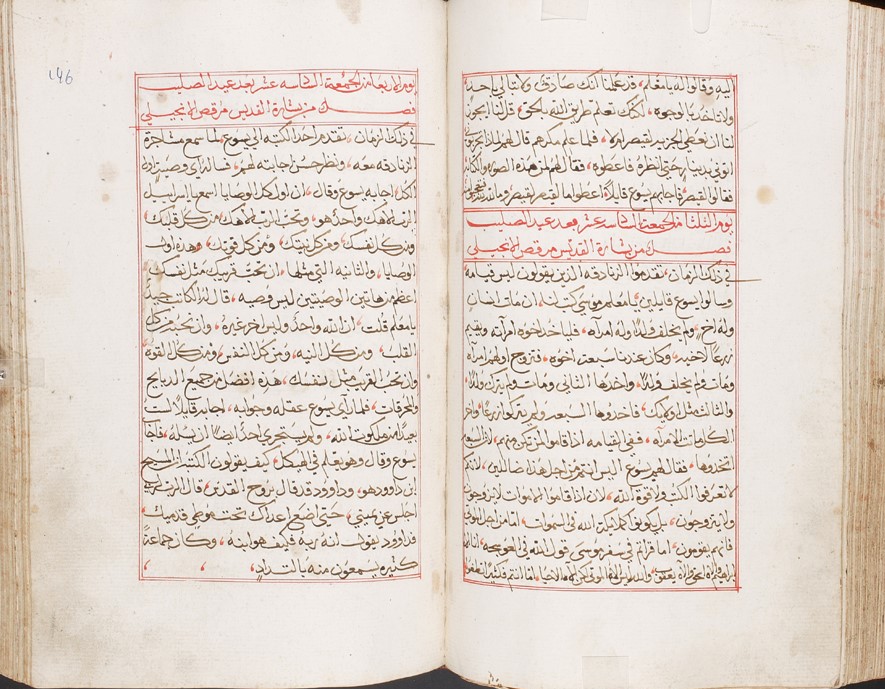 اليه وقالوا له يا معلم، قد علمنا انك صادق، ولا تبالي باحد
ولا تاخذ بالوجوه، لكنك تعلم طريق الله بالحق، قل لنا ايجوز
لنا ان نعطي الجزيه لقيصر ام لا، فلما علم مكرهم قال لهم لماذا تجربوني
اتوني بدينار حتى انظره فاعطوه، فقال لهم لمن هذه الصوره والكتابه
فقالوا لقيصر، فاجابهم يسوع قايلا، اعطوا ما لقيصر لقيصر وما لله
يوم الثلثا من الجمعه السادسه عشر بعد عيد الصليب
فصل من بشارة القديس مرقص الانجيلي
في ذلك الزمان، تقدموا الزنادقه الذين يقولون ليس قيامه
وسالوا يسوع قايلين، يا معلم موسى كتب لنا، ان مات انسان
وله اخ، ولم يخلف ولدا وله امراه، فلياخذ اخوه امراته ويقيم
زرعا لاخيه، وكان عندنا سبعة اخوه، فتزوج اولهم امراه
ومات ولم يخلف ولدا، واخذها الثاني ومات ولم يترك ولدا
والثالث مثل اوليك، فاخذوها السبعه ولم يتركوا زرعا، واخر
الكل ماتت الامراه، ففي القيامه اذا قاموا لمن تكن منهم، لان السبعه
اتخذوها، فقال لهم يسوع اليس انتم من اجل هذا ضالين، لانكم
لا تعرفوا الكتب ولا قوة الله، لان اذا قاموا الاموات لا يزوجوا
ولا يتزوجون، بل يكونوا كملايكة الله في السموات، اما من اجل الموتى
فانهم يقومون، اما قراتم في سفر موسى قول الله في العوسجه، انا اله
ابراهيم واله اسحق واله يعقوب، والله ليس اله الموتى لكن اله الاحيا، اما انتم فكثيرا تضلون
يوم الاربعا من الجمعه السادسه عشر بعد عيد الصليب
فصل من بشارة القديس مرقص الانجيلي
في ذلك الزمان، تقدم احد الكتبه الى يسوع لما سمع مشاجرة
الزنادقه معه، ونظر حسن اجابته لهم، فساله اي وصيه اول
الكل، اجابه يسوع وقال، ان اول كل الوصايا اسمع يا اسراييل
الرب الاهك واحد هو، وتحب الرب الاهك، من كل قلبك
ومن كل نفسك، ومن كل نيتك، ومن كل قوتك، وهذه اولى
الوصايا، والثانيه التي مثلها، ان تحب قريبك مثل نفسك
اعظم من هاتين الوصيتين ليس وصيه، قال له الكاتب جيدا
يا معلم قلت، ان الله واحد وليس اخر غيره، وان نحبه من كل
القلب، ومن كل النيه، ومن كل النفس، ومن كل القوه
وان نحب القريب مثل النفس، هذه افضل من جميع الدبايح
والمحرقات، فلما راى يسوع عقله وجوابه، اجابه قايلا لست
بعيدا من ملكوت الله، ولم يستجري احد ايضا ان يسله، فاجاب
يسوع وقال وهو يعلم في الهيكل، كيف يقولون الكتبه ان المسيح
ابن داوود هو، وداوود قد قال بروح القدس، قال الرب لربي
اجلس عن يميني، حتى اضع اعداك تحت موطي قدميك
فداوود يقول انه ربه فكيف هو ابنه، وكان جماعة
كثيره يسمعون منه بالتداد